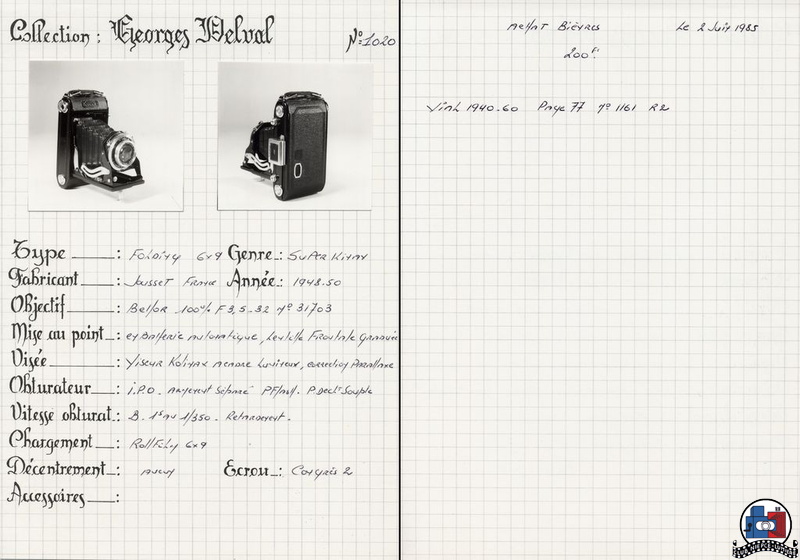 Collection : Georges Delval
No 1020
Type : Folding 6x9 Genre : Super Kinax
Fabricant : Jousset France Année : 1948.50
Objectif : Bellor 100m/m F 3,5-32 No 31703
Mise au point : en Batterie automatique, Lentille Frontale
Visée : Viseur Kolinax à cadre Lumineux, correction Parallaxe
Obturateur : I.P.O. armement séparé PF Decl. Souple
Vitesse obturat. : B. 1s au 1/350. Retardement.
Chargement : Rollfilm 6x9
Décentrement : aucun Ecrou : Congrès 2
Accessoires :
Achat Bièvres Le 2 Juin 1985
200F.
Vial 1940-60 Page 77 No 1161 R2